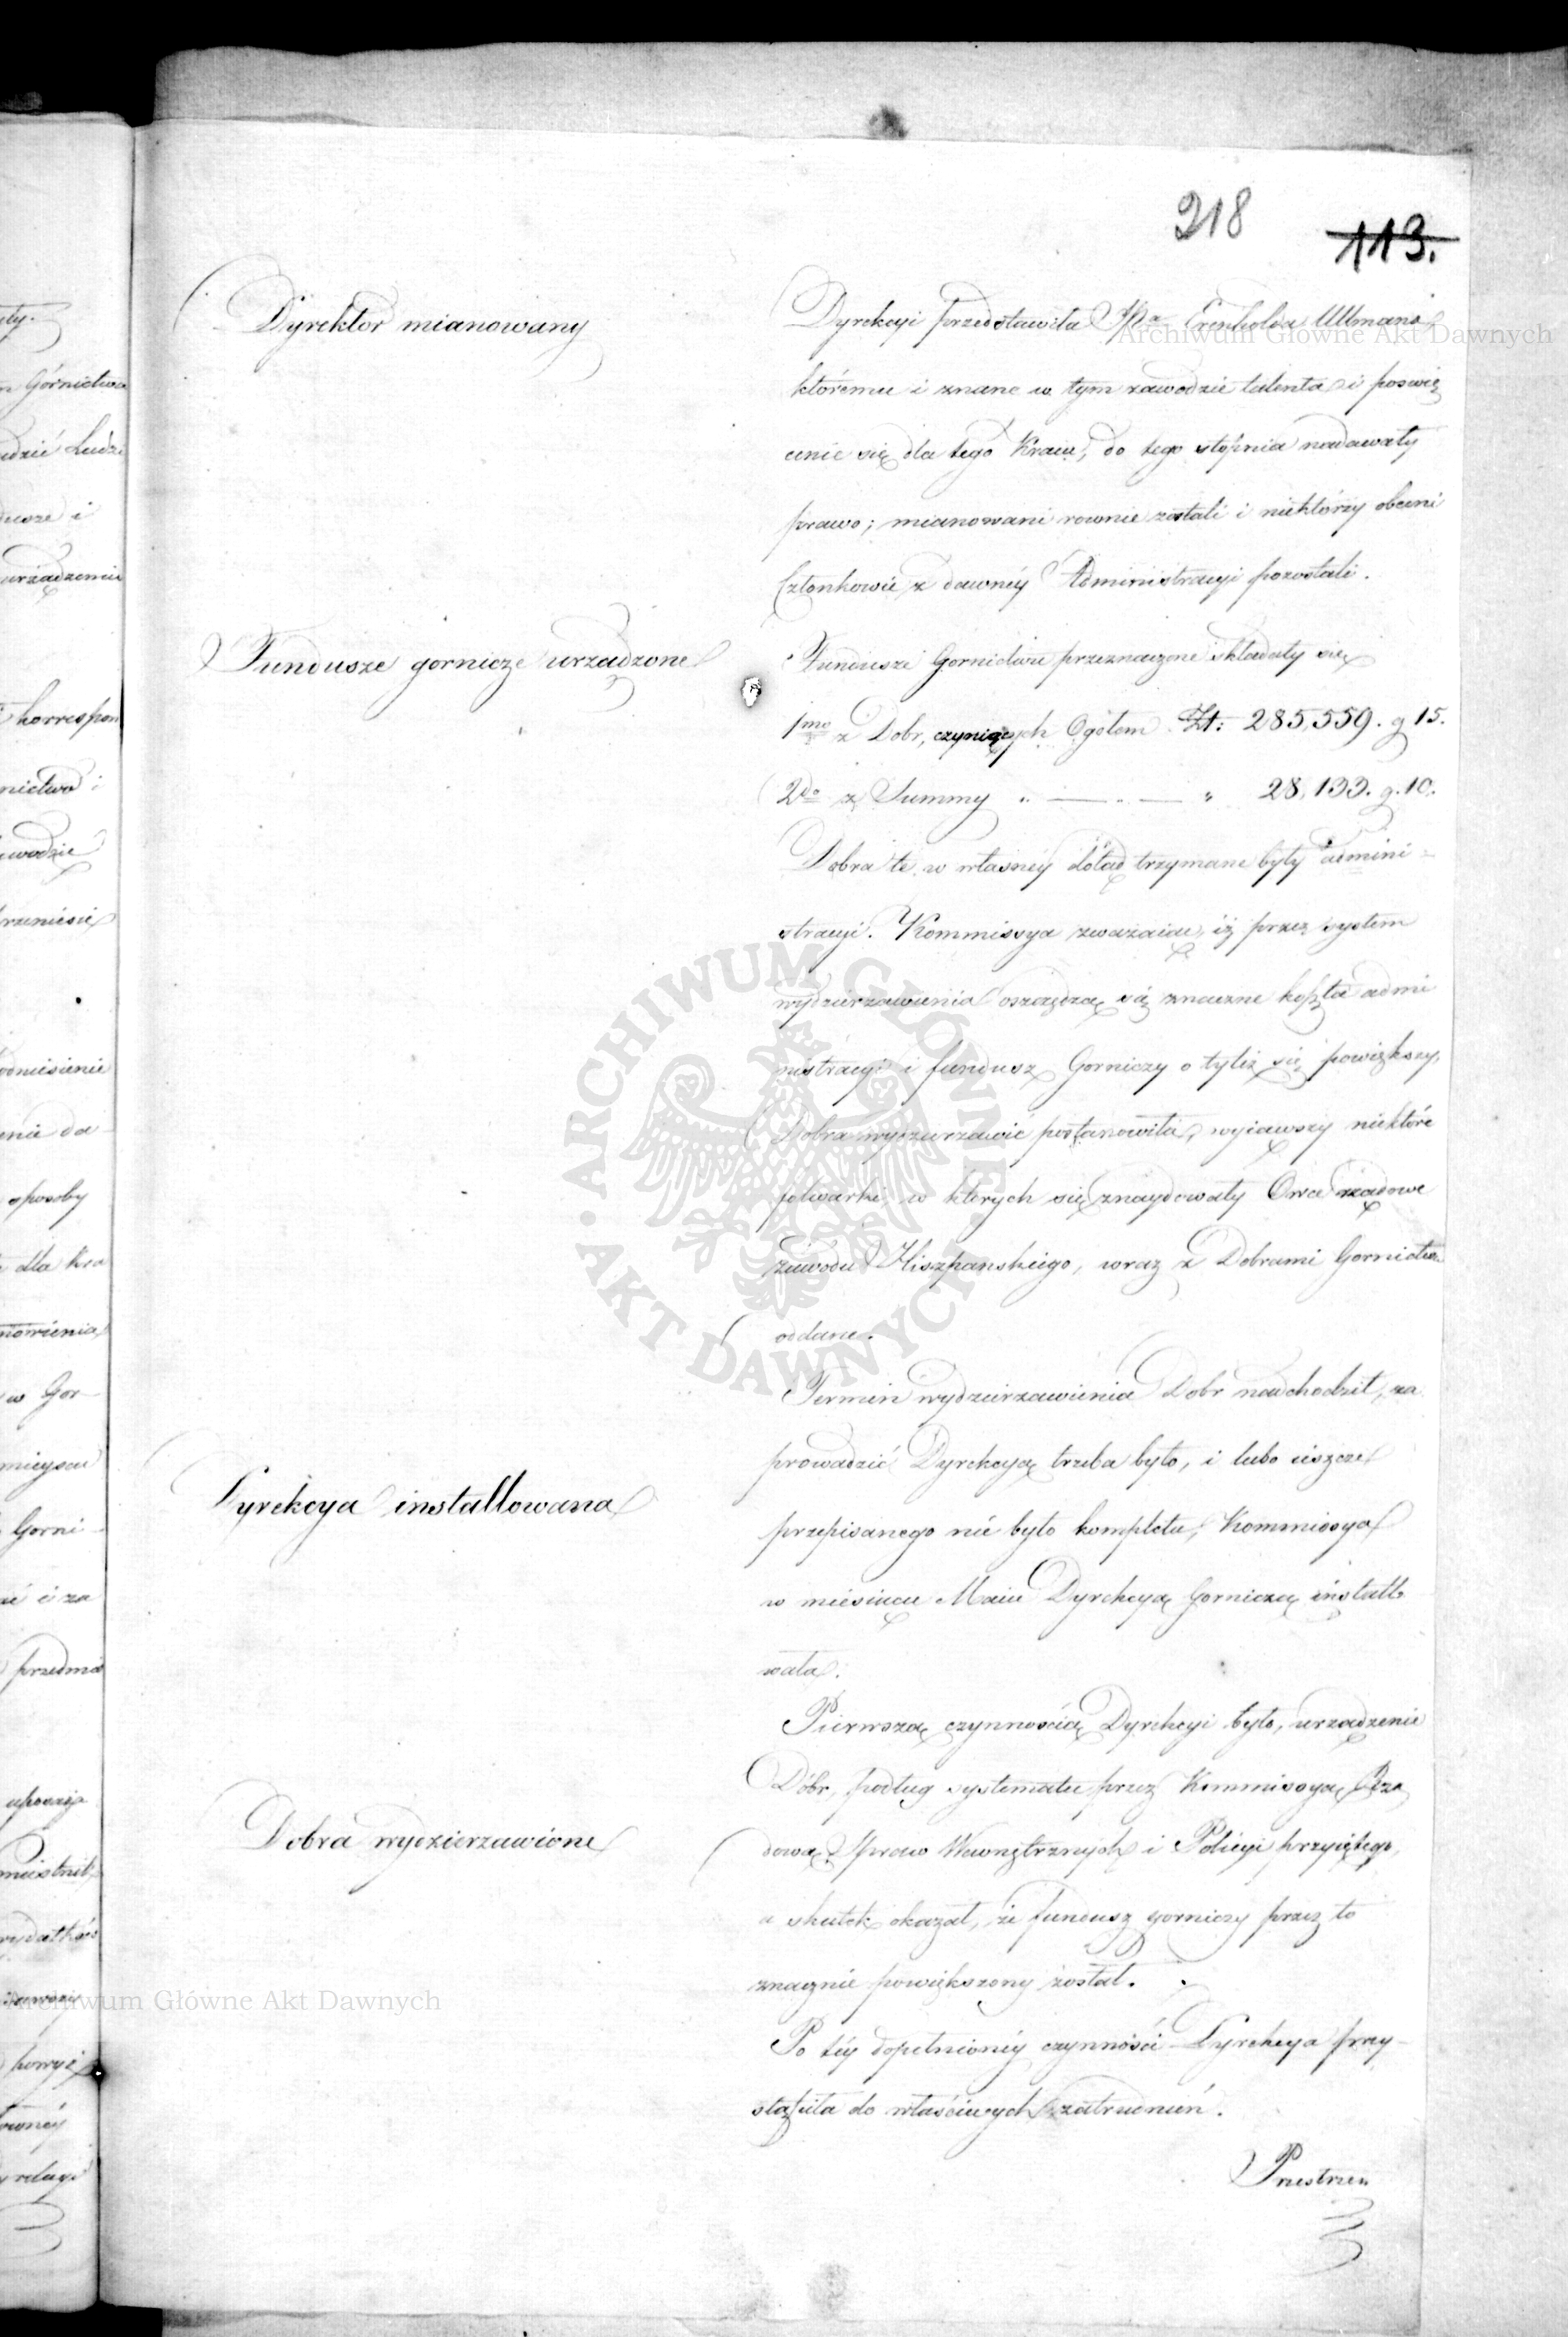 218
113.
Dyrektor mianowany
Dyrekcyi przedstawiła JPa Ullmana
któremu i znane w tym zawodzie talenta i poswię
cenie się dla tego Kraiu, do tego stopnia nadawały
prawo; mianowani rownie zostali i niektórzy obecni
Członkowie z dawnéy Administracyi pozostali.
Fundusze gornicze urządzone
Fundusze Gornictwu przeznaczone składały się
1mo z Dobr, czyniących Ogółem Zł: 285,559. g 15.
2do z Summy " — " — " 28,133. g. 10.
Dobra te w własnéy dotąd trzymane były admini-
stracyi. Kommissya zważaiąc, iż przez system
wydzierzawienia oszczędzą się znaczne koszta admi
nistracyi i fundusz Gorniczy o tyleż się powiększy,
Dobra wydzierzawić postanowiła, wyiąwszy niektóre
folwarki, w ktorych się znaydowały Owce rządowe
zawodu Hiszpanskiego, wraz z Dobrami Gornictwu
oddane.
Termin wydzierzawienia Dobr nadchodził, za
prowadzić Dyrekcyą trzeba było, i lubo ieszcze
Dyrekcya installowana
przepisanego nie było kompletu, Kommissya
w miesiącu Maiu Dyrekcyą Gorniczą installo
wała.
Pierwszą czynnością Dyrekcyi było, urządzenie
Dóbr, podług systematu przez Kommissyą Rzą
Dobra wydzierzawione
dową Spraw Wewnętrznych i Policyi przyiętego,
a skutek okazał, że fundusz gorniczy przez to
znacznie powiększony został.
Po téy dopełnionéy czynności Dyrekcya przy-
stąpiła do właściwych zatrudnień.
Przestrzen
Archiwum Główne Akt Dawnych
ARCHIWUM GŁÓWNE AKT DAWNYCH
Archiwum Główne Akt Dawnych